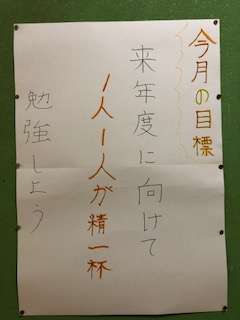 今月の目標
来年度に向けて
1人1人が精一杯
勉強しよう